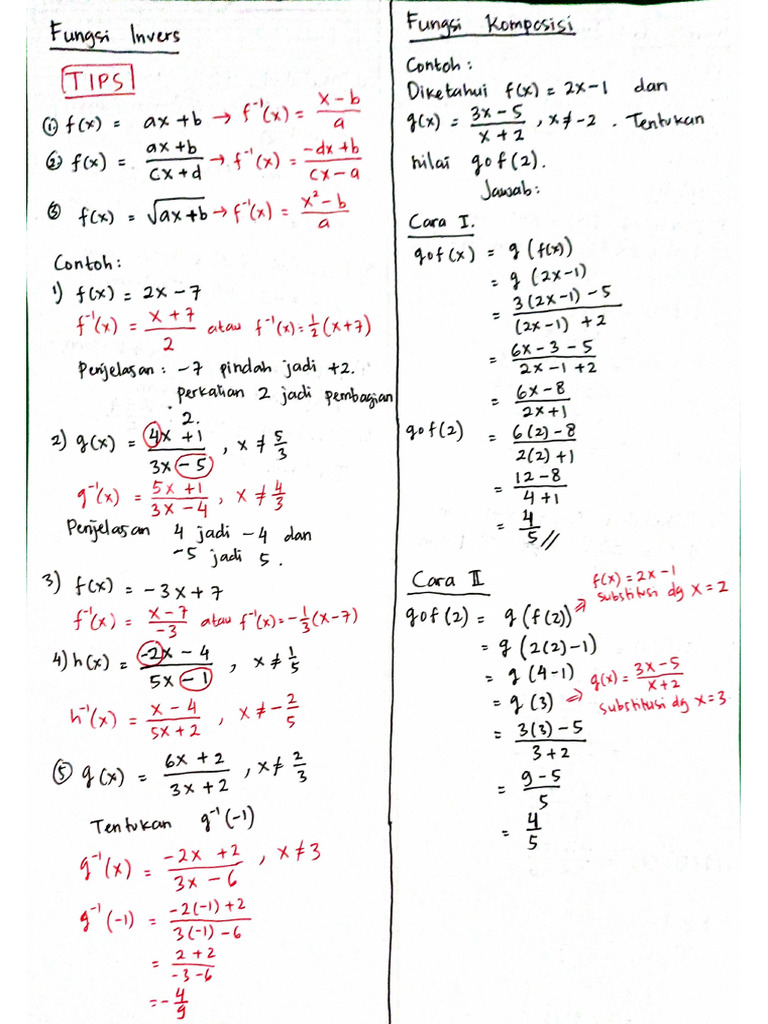 Fungsi Invers
TIPS
① f(x) = ax + b → f⁻¹(x) = (x – b)/a
② f(x) = (ax + b)/(cx + d) → f⁻¹(x) = (–dx + b)/(cx – a)
③ f(x) = √(ax + b) → f⁻¹(x) = (x² – b)/a
Contoh :
1) f(x) = 2x – 7
f⁻¹(x) = (x + 7)/2 atau f⁻¹(x) = ½(x+7)
Penjelasan : –7 pindah jadi +2.
perkalian 2 jadi pembagian
2.
2) g(x) = (4x + 1)/(3x – 5) , x ≠ 5/3
g⁻¹(x) = (5x + 1)/(3x – 4) , x ≠ 4/3
Penjelasan 4 jadi –4 dan
–5 jadi 5.
3) f(x) = –3x + 7
f⁻¹(x) = (x – 7)/–3 atau f⁻¹(x) = –⅓(x–7)
4) h(x) = (–2x – 4)/(5x – 1) , x ≠ 1/5
h⁻¹(x) = (x – 4)/(5x + 2) , x ≠ –2/5
⑤ g(x) = (6x + 2)/(3x + 2) , x ≠ 2/3
Tentukan g⁻¹(–1)
g⁻¹(x) = (–2x + 2)/(3x – 6) , x ≠ 3
g⁻¹(–1) = (–2(–1) + 2)/(3(–1) – 6)
= (2 + 2)/(–3 – 6)
= –4/9
Fungsi Komposisi
Contoh :
Diketahui f(x) = 2x – 1 dan
g(x) = (3x – 5)/(x + 2) , x ≠ –2 . Tentukan
nilai gof(2).
Jawab :
Cara I.
gof(x) = g(f(x))
= g(2x–1)
= (3(2x–1) – 5)/((2x–1) + 2)
= (6x – 3 – 5)/(2x – 1 + 2)
= (6x – 8)/(2x + 1)
gof(2) = (6(2) – 8)/(2(2) + 1)
= (12 – 8)/(4 + 1)
= 4/5 //
Cara II
gof(2) = g(f(2)) ⇒ f(x) = 2x – 1
substitusi dg x = 2
= g(2(2) – 1)
= g(4–1)
= g(3) ⇒ g(x) = (3x – 5)/(x + 2)
substitusi dg x = 3
= (3(3) – 5)/(3 + 2)
= (9 – 5)/5
= 4/5